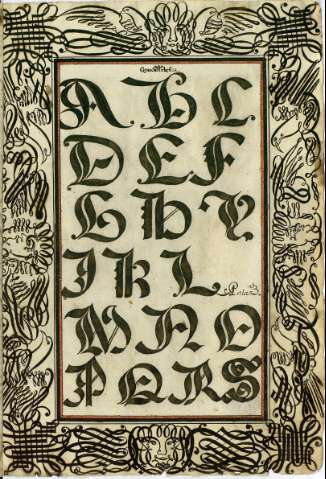 A B C
D E F
G H Y
I K L
M N O
P Q R S